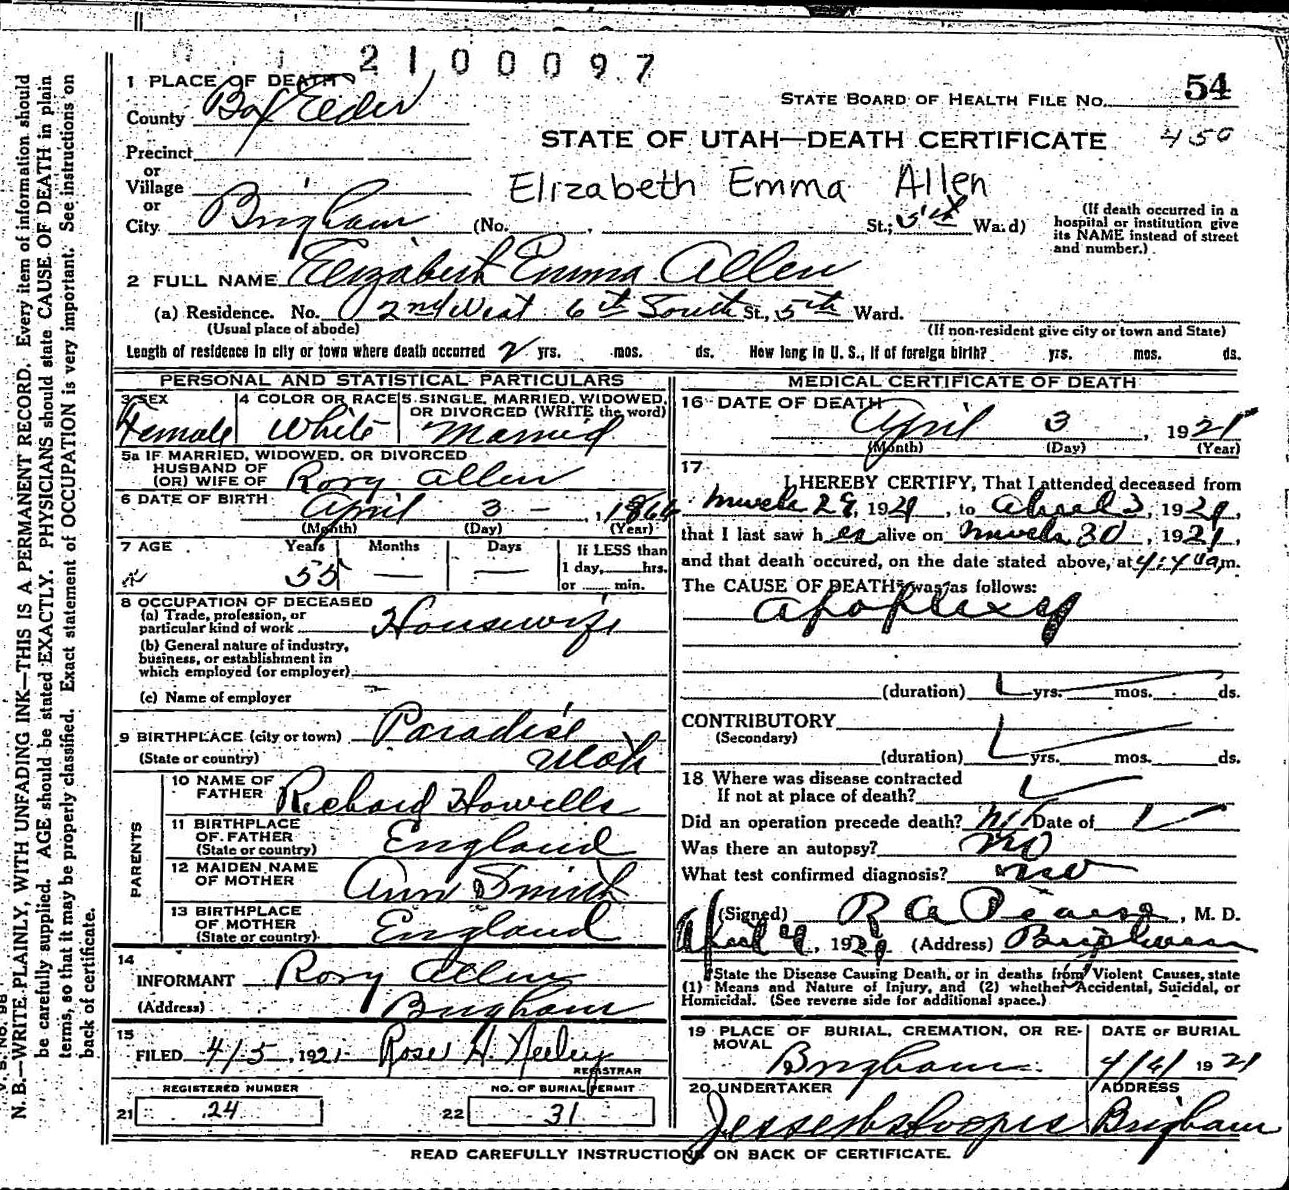 2100097
1 PLACE OF DEATH
County Box Elder
STATE BOARD OF HEALTH FILE No. 54
STATE OF UTAH—DEATH CERTIFICATE 450
Precinct
or
Village
or
City Brigham (No. St.; 5th Ward)
Elizabeth Emma Allen
(If death occurred in a
hospital or institution give
its NAME instead of street
and number.)
2 FULL NAME Elizabeth Emma Allen
(a) Residence. No. 2nd West 6th South St., 5th Ward.
(Usual place of abode) (If non-resident give city or town and State)
Length of residence in city or town where death occurred 2 yrs. mos. ds. How long in U. S., if of foreign birth? yrs. mos. ds.
PERSONAL AND STATISTICAL PARTICULARS
3 SEX Female
4 COLOR OR RACE White
5 SINGLE, MARRIED, WIDOWED,
OR DIVORCED (WRITE the word)
Married
5a IF MARRIED, WIDOWED, OR DIVORCED
HUSBAND OF
(OR) WIFE OF Rory Allen
6 DATE OF BIRTH April 3 — , 1866
(Month) (Day) (Year)
7 AGE Years Months Days If LESS than
55 — — 1 day,......hrs.
or ...... min.
8 OCCUPATION OF DECEASED
(a) Trade, profession, or
particular kind of work Housewife
(b) General nature of industry,
business, or establishment in
which employed (or employer)
(c) Name of employer
9 BIRTHPLACE (city or town) Paradise
(State or country) Utah
PARENTS
10 NAME OF
FATHER Richard Howells
11 BIRTHPLACE
OF FATHER England
(State or country)
12 MAIDEN NAME
OF MOTHER Ann Smith
13 BIRTHPLACE
OF MOTHER England
(State or country)
14
INFORMANT Rory Allen
(Address) Brigham
15
FILED 4/5, 1921 Rose H. Neeley
REGISTRAR
REGISTERED NUMBER NO. OF BURIAL PERMIT
21 24 22 31
MEDICAL CERTIFICATE OF DEATH
16 DATE OF DEATH
April 3 , 1921
(Month) (Day) (Year)
17
I HEREBY CERTIFY, That I attended deceased from
March 29, 1921, to April 3, 1921,
that I last saw her alive on March 30, 1921,
and that death occured, on the date stated above, at 4:40am.
The CAUSE OF DEATH* was as follows:
Apoplexy
(duration) yrs. mos. ds.
CONTRIBUTORY
(Secondary)
(duration) yrs. mos. ds.
18 Where was disease contracted
If not at place of death?
Did an operation precede death? Date of
Was there an autopsy? no
What test confirmed diagnosis?
(Signed) R A Pearse, M. D.
April 4, 1921 (Address) Brigham
State the Disease Causing Death, or in deaths from Violent Causes, state
(1) Means and Nature of Injury, and (2) whether Accidental, Suicidal, or
Homicidal. (See reverse side for additional space.)
19 PLACE OF BURIAL, CREMATION, OR RE-
MOVAL
Brigham
DATE OF BURIAL
4/6/ 1921
20 UNDERTAKER
ADDRESS
Brigham
READ CAREFULLY INSTRUCTIONS ON BACK OF CERTIFICATE.
N. B.—WRITE PLAINLY, WITH UNFADING INK—THIS IS A PERMANENT RECORD. Every item of information should
be carefully supplied. AGE should be stated EXACTLY. PHYSICIANS should state CAUSE OF DEATH in plain
terms, so that it may be properly classified. Exact statement of OCCUPATION is very important. See instructions on
back of certificate.